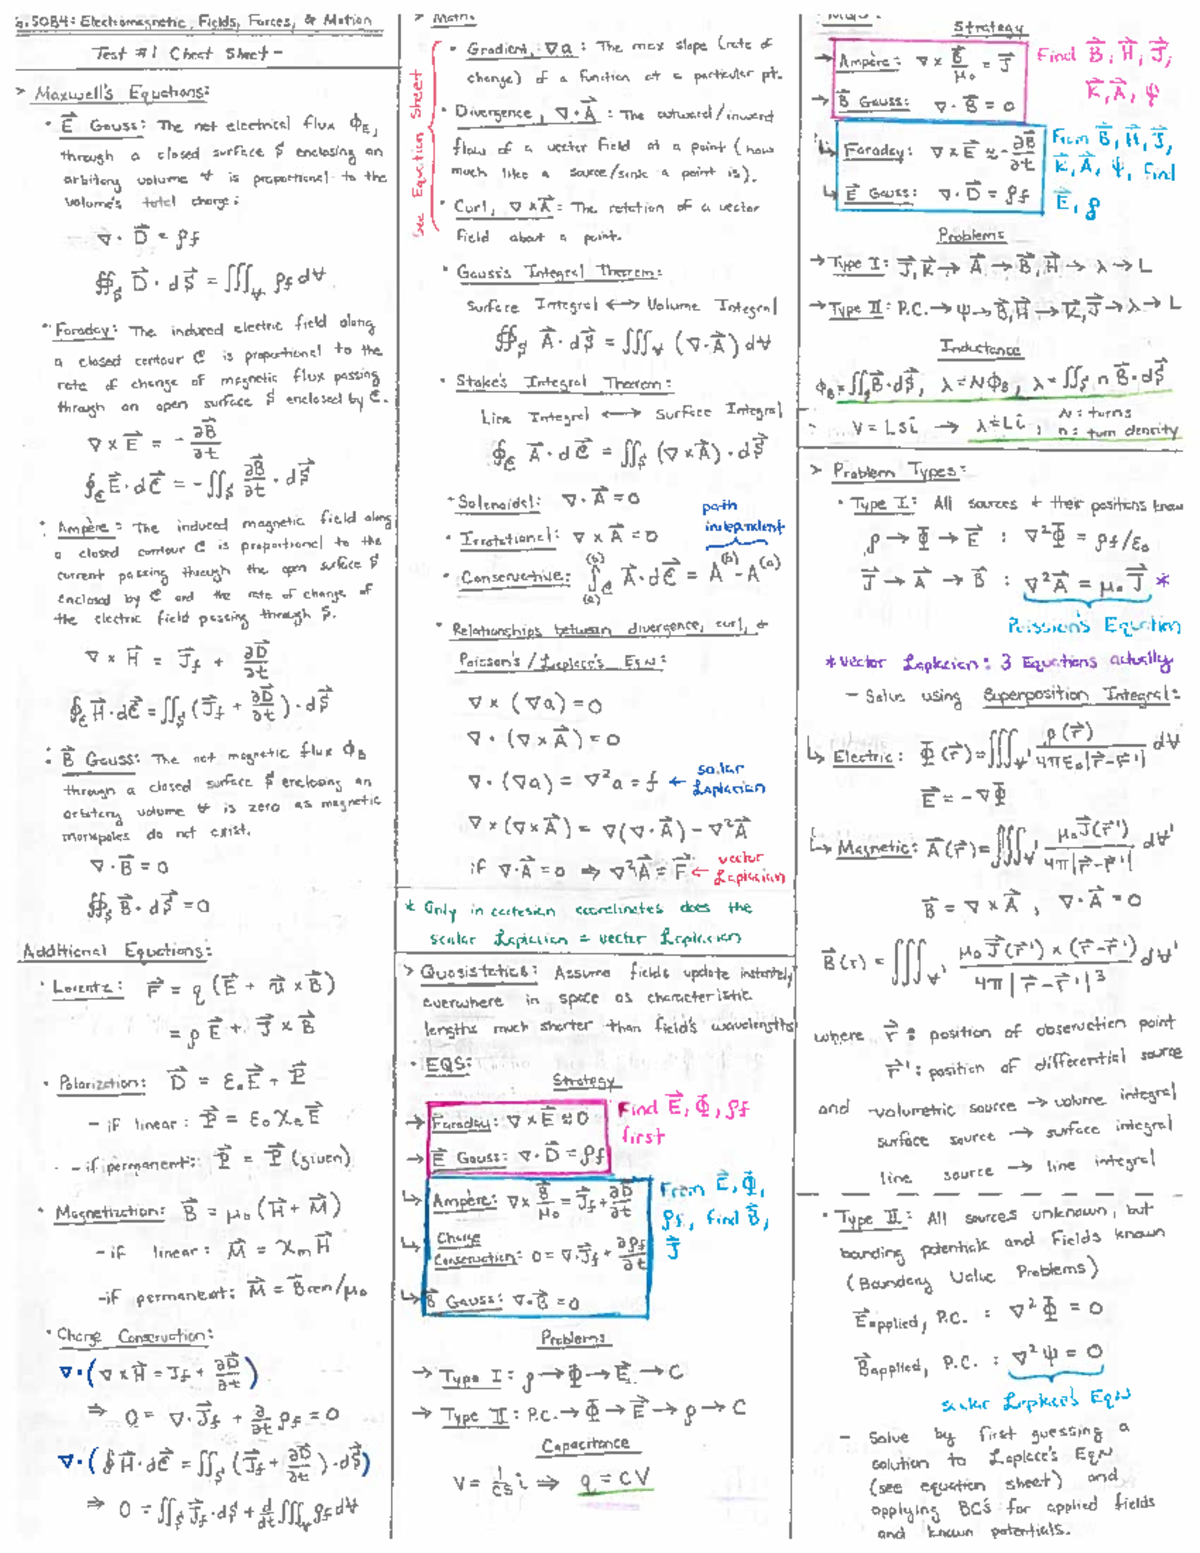 6.5084: Electromagnetic, Fields, Forces, & Motion
Test #1 Cheat Sheet -
> Maxwell's Equations:
• E⃗ Gauss: The net electrical flux ΦE,
through a closed surface S enclosing an
arbitary volume V is proportional to the
volume's total charge:
∇· D⃗ = ρf
∯S D⃗ · dS⃗ = ∭V ρf dV
• Faraday: The induced electric field along
a closed contour C is proportional to the
rate of change of magnetic flux passing
through an open surface S enclosed by C.
∇ × E⃗ = - ∂B⃗/∂t
∮C E⃗ · dC⃗ = - ∬S ∂B⃗/∂t · dS⃗
• Ampère: The induced magnetic field along
a closed contour C is proportional to the
current passing through the open surface S
enclosed by C and the rate of change of
the electric field passing through S.
∇ × H⃗ = J⃗f + ∂D⃗/∂t
∮C H⃗ · dC⃗ = ∬S (J⃗f + ∂D⃗/∂t) · dS⃗
• B⃗ Gauss: The net magnetic flux ΦB
through a closed surface S enclosing an
arbitary volume V is zero as magnetic
monopoles do not exist.
∇ · B⃗ = 0
∯S B⃗ · dS⃗ = 0
Additional Equations:
• Lorentz: F⃗ = q (E⃗ + u⃗ × B⃗)
= ρE⃗ + J⃗ × B⃗
• Polarization: D⃗ = ε₀E⃗ + P⃗
- if linear: P⃗ = ε₀ χe E⃗
- if permanent: P⃗ = P⃗ (given)
• Magnetization: B⃗ = μ₀ (H⃗ + M⃗)
- if linear: M⃗ = χm H⃗
- if permanent: M⃗ = B⃗rem/μ₀
• Charge Conservation:
∇·(∇ × H⃗ = J⃗f + ∂D⃗/∂t)
⇒ 0 = ∇ · J⃗f + ∂/∂t ρf = 0
∇·(∮ H⃗ · dC⃗ = ∬S (J⃗f + ∂D⃗/∂t) · dS⃗)
⇒ 0 = ∬S J⃗f · dS⃗ + d/dt ∭V ρf dV
> Math:
See Equation Sheet
• Gradient, ∇a: The max slope (rate of
change) of a function at a particular pt.
• Divergence, ∇ · A⃗: The outward/inward
flow of a vector field at a point (how
much like a source/sink a point is).
• Curl, ∇ × A⃗: The rotation of a vector
field about a point.
• Gauss's Integral Theorem:
Surface Integral ↔ Volume Integral
∯S A⃗ · dS⃗ = ∭V (∇ · A⃗) dV
• Stoke's Integral Theorem:
Line Integral ↔ Surface Integral
∮C A⃗ · dC⃗ = ∬S (∇ × A⃗) · dS⃗
• Solenoidal: ∇ · A⃗ = 0
• Irrotational: ∇ × A⃗ = 0
path independent
• Conservative: ∫C(a)(b) A⃗ · dC⃗ = A(b) - A(a)
• Relationships between divergence, curl, +
Poisson's / Laplace's EQN:
∇ × (∇a) = 0
∇ · (∇ × A⃗) = 0
∇ · (∇a) = ∇²a = f ← scalar Laplacian
∇ × (∇ × A⃗) = ∇(∇ · A⃗) - ∇²A⃗
if ∇·A⃗ = 0 ⇒ ∇²A⃗ = F⃗ ← vector Laplacian
* Only in cartesian coordinates does the
scalar Laplacian = vector Laplacian
> Quasistatics: Assume fields update instantly
everwhere in space as characteristic
lengths much shorter than field's wavelengths
• EQS:
Strategy
→ Faraday: ∇ × E⃗ ≈ 0
→ E⃗ Gauss: ∇ · D⃗ = ρf
Find E⃗, Φ, ρf
first
↳ Ampère: ∇ × B⃗/μ₀ = J⃗f + ∂D⃗/∂t
↳ Charge
Conservation: 0 = ∇ · J⃗f + ∂ρf/∂t
↳ B⃗ Gauss: ∇ · B⃗ = 0
From E⃗, Φ,
ρf, find B⃗,
J⃗
Problems
→ Type I: ρ → Φ → E⃗ → C
→ Type II: P.C. → Φ → E⃗ → ρ → C
Capacitance
V = 1/Cs i ⇒ q = CV
MQS:
Strategy
→ Ampère: ∇ × B⃗/μ₀ = J⃗
→ B⃗ Gauss: ∇ · B⃗ = 0
Find B⃗, H⃗, J⃗,
K⃗, A⃗, ψ
↳ Faraday: ∇ × E⃗ ≈ - ∂B⃗/∂t
↳ E⃗ Gauss: ∇ · D⃗ = ρf
From B⃗, H⃗, J⃗,
K⃗, A⃗, ψ, find
E⃗, ρ
Problems
→ Type I: J⃗, K⃗ → A⃗ → B⃗, H⃗ → λ → L
→ Type II: P.C. → ψ → B⃗, H⃗ → K⃗, J⃗ → λ → L
Inductance
ΦB = ∬S B⃗ · dS⃗, λ = NΦB, λ = ∬S n B⃗ · dS⃗
V = Lsi → λ = Li, N: turns
n: turn density
> Problem Types:
• Type I: All sources + their positions know
ρ → Φ → E⃗ : ∇²Φ = ρf/ε₀
J⃗ → A⃗ → B⃗ : ∇²A⃗ = μ₀J⃗ *
Poission's Equation
* Vector Laplacian: 3 Equations actually
- Solve using Superposition Integral:
↳ Electric: Φ(r⃗) = ∭V' ρ(r⃗) / 4πε₀|r⃗ - r⃗'| dV
E⃗ = -∇Φ
↳ Magnetic: A⃗(r⃗) = ∭V' μ₀J⃗(r⃗') / 4π|r⃗ - r⃗'| dV'
B⃗ = ∇ × A⃗, ∇ · A⃗ = 0
B⃗(r) = ∭V' μ₀J⃗(r⃗') × (r⃗ - r⃗') / 4π|r⃗ - r⃗'|³ dV'
where r⃗: position of observation point
r⃗': position of differential source
and volumetric source → volume integral
surface source → surface integral
line source → line integral
• Type II: All sources unknown, but
bounding potentials and fields known
(Boundary Value Problems)
E⃗applied, P.C. : ∇²Φ = 0
B⃗applied, P.C. : ∇²ψ = 0
scalar Laplace's EQN
- Solve by first guessing a
solution to Laplace's EQN
(see equation sheet) and
applying BC's for applied fields
and known potentials.